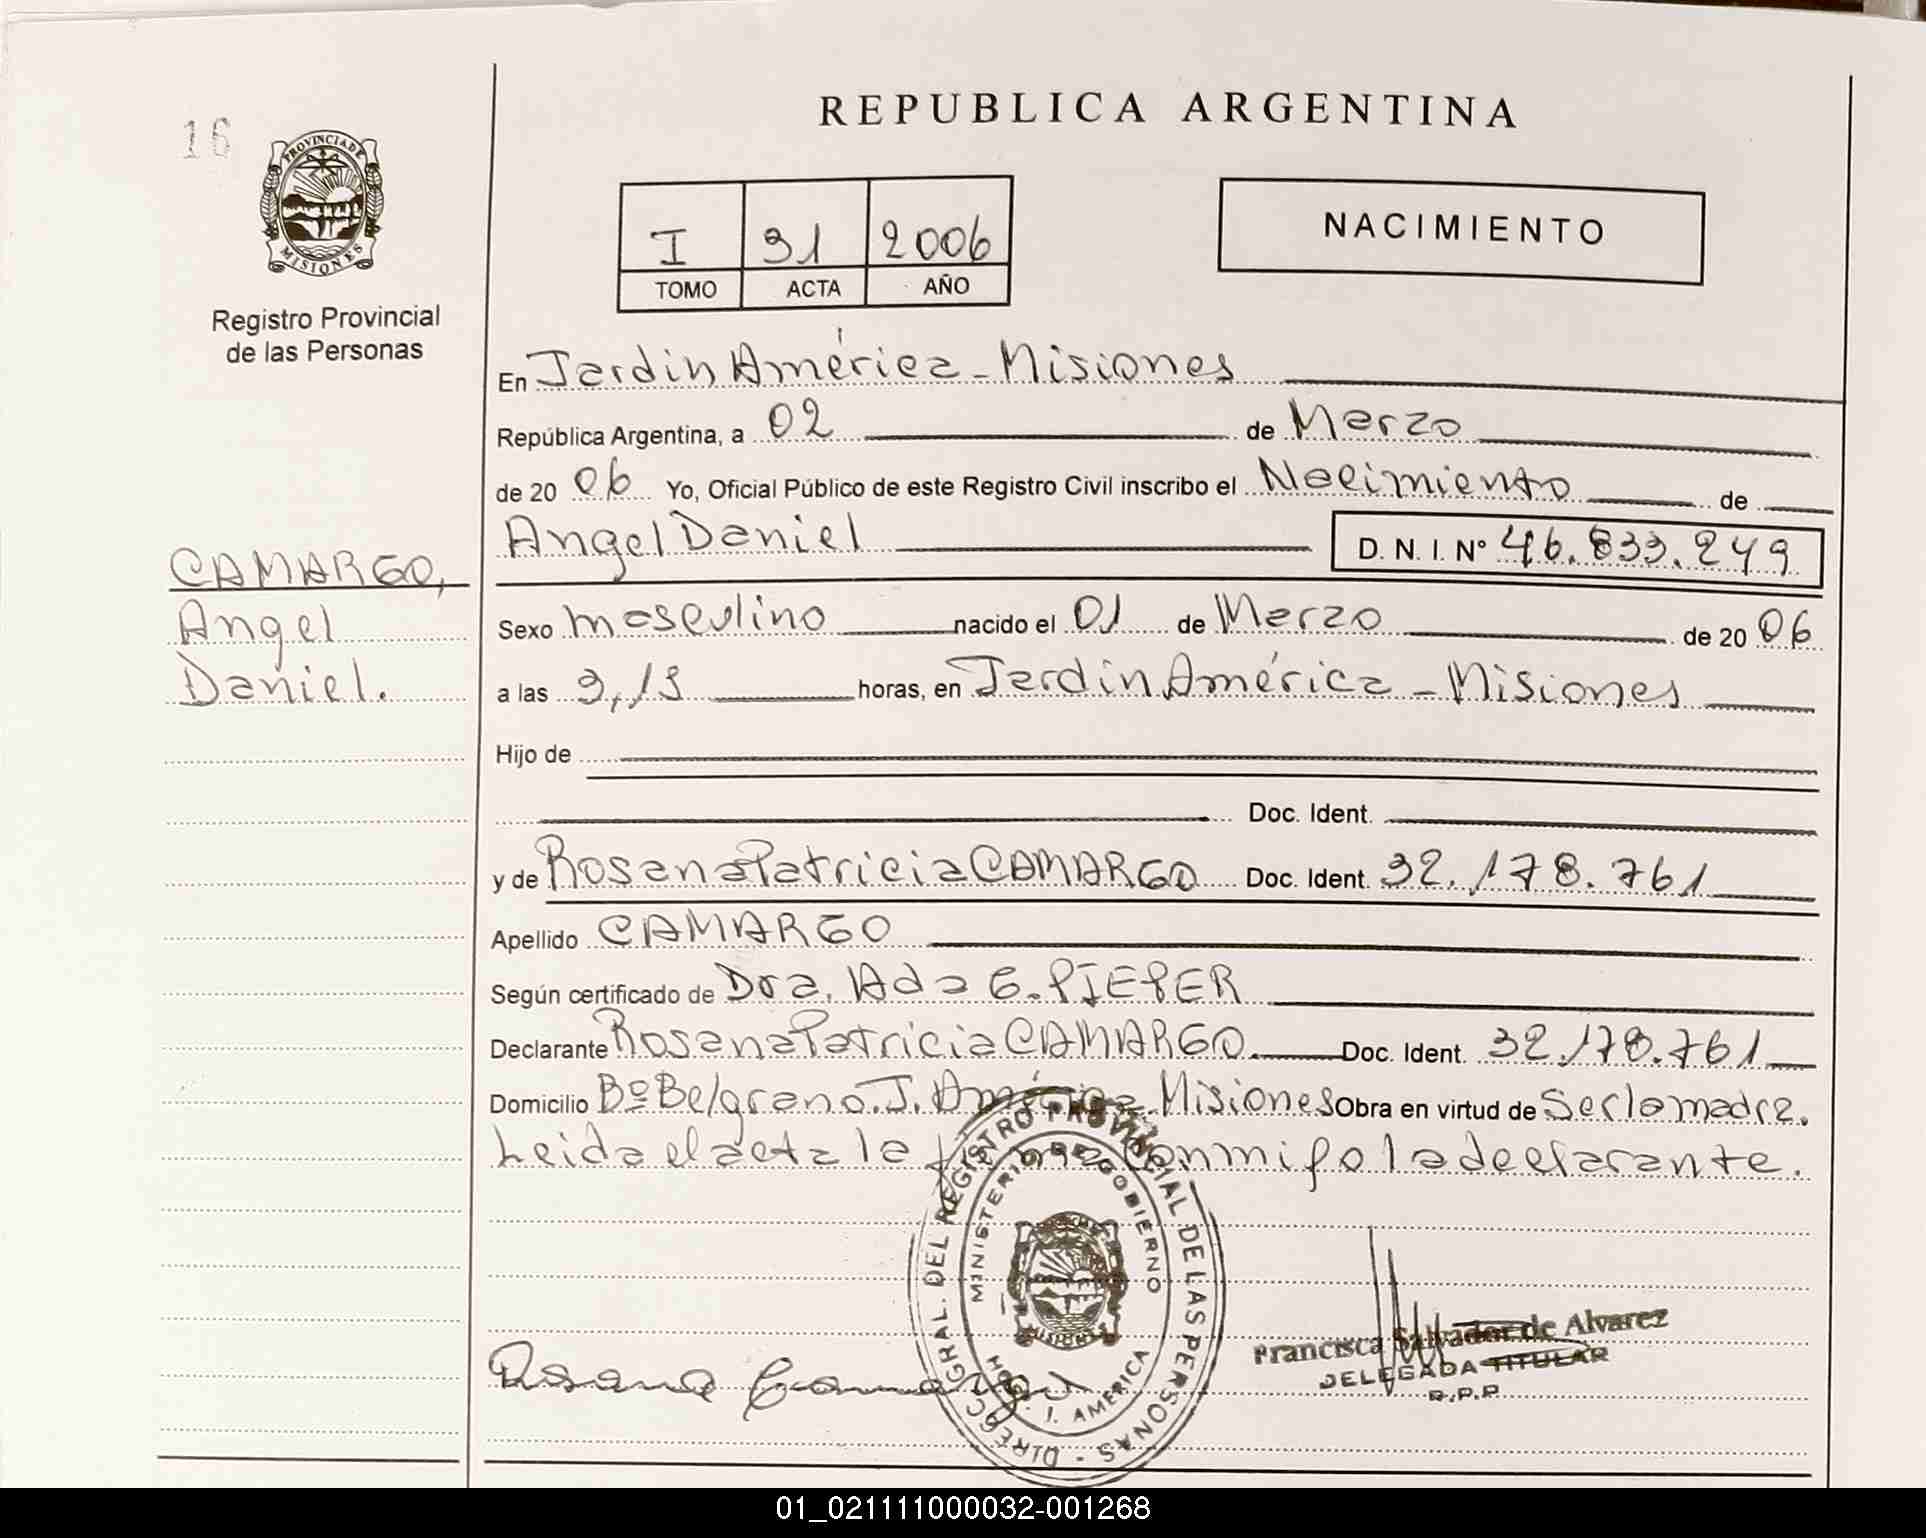 REPUBLICA ARGENTINA
16
PROVINCIA DE
MISIONES
Registro Provincial
de las Personas
I 31 2006
TOMO ACTA AÑO
NACIMIENTO
En Jardin América - Misiones
República Argentina, a 02 de Marzo
de 20 06 Yo, Oficial Público de este Registro Civil inscribo el Nacimiento de
Angel Daniel D. N. I. Nº 46.833.249
CAMARGO,
Angel
Daniel.
Sexo masculino nacido el 01 de Marzo de 20 06
a las 9,15 horas, en Jardin América - Misiones
Hijo de
Doc. Ident.
y de Rosana Patricia CAMARGO Doc. Ident. 32.178.761
Apellido CAMARGO
Según certificado de Dra. Ada G. PIEPER
Declarante Rosana Patricia CAMARGO. Doc. Ident. 32.178.761
Domicilio Bº Belgrano. J. América. Misiones Obra en virtud de Ser la madre.
Leida el acta la firma conmigo la declarante.
DIRECC. GRAL. DEL REGISTRO PROVINCIAL DE LAS PERSONAS
MINISTERIO DE GOBIERNO
MISIONES
J. AMERICA
Rosana Camargo
Francisca Salvador de Alvarez
DELEGADA TITULAR
R.P.P
01_021111000032-001268